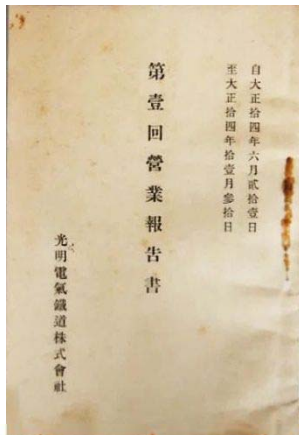 自大正拾四年六月貳拾壹日
至大正拾四年拾壹月參拾日
第壹回營業報告書
光明電氣鐵道株式會社